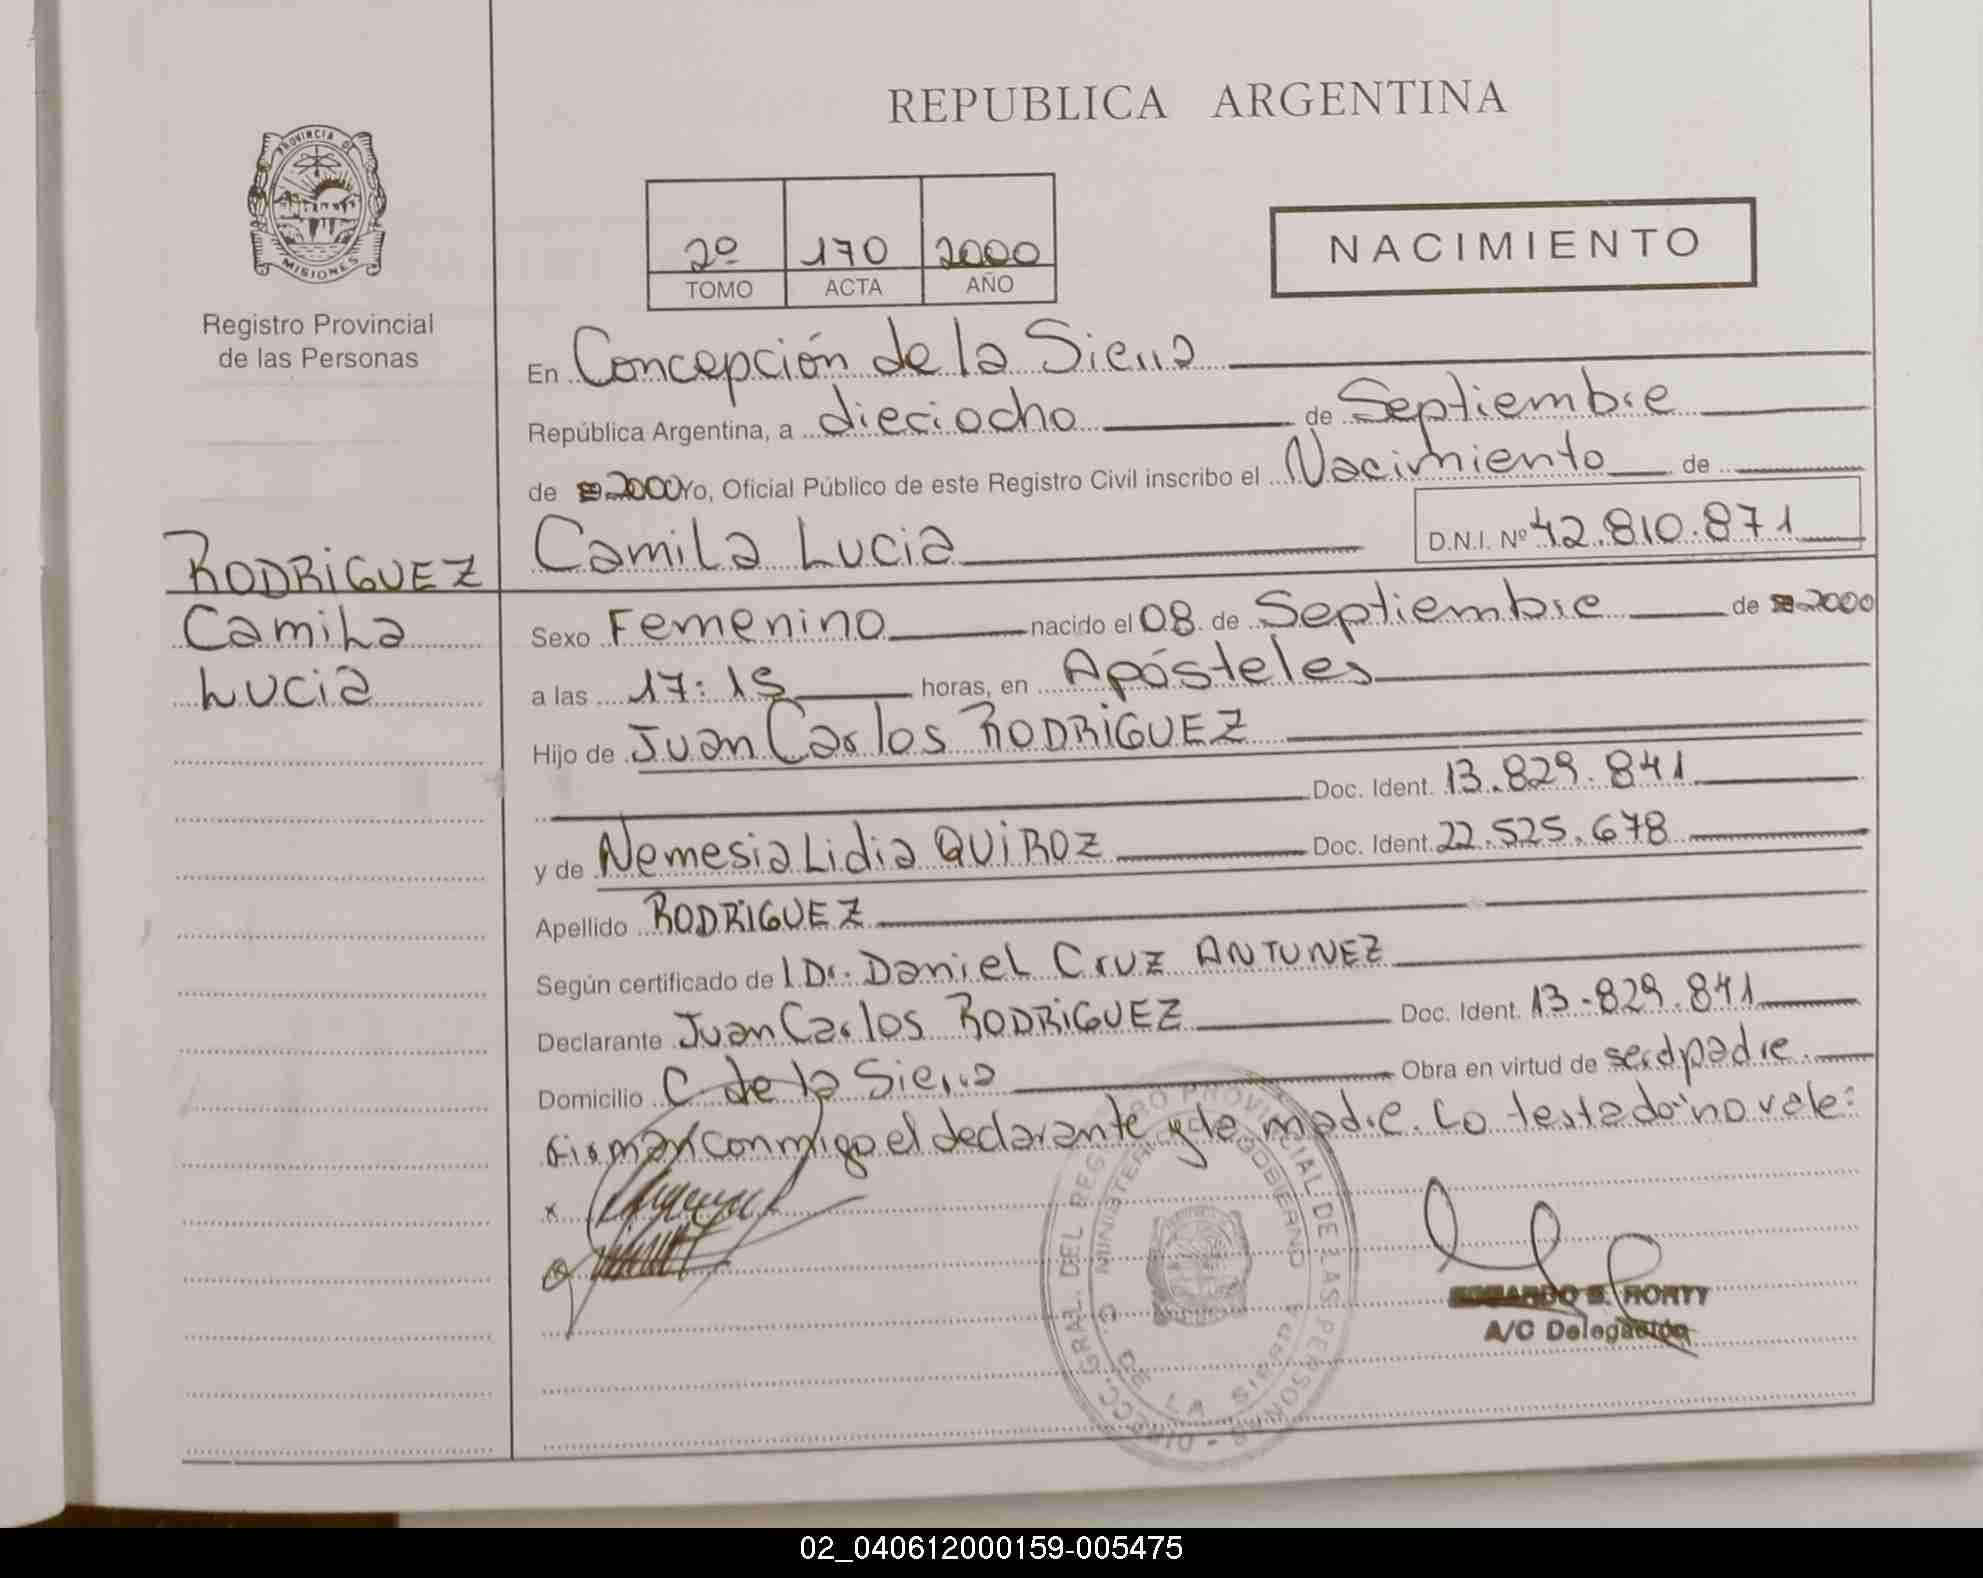 REPUBLICA ARGENTINA
PROVINCIA DE
MISIONES
Registro Provincial
de las Personas
2º 170 2000
TOMO ACTA AÑO
NACIMIENTO
En Concepción de la Sierra
República Argentina, a dieciocho de Septiembre
de 2000 Yo, Oficial Público de este Registro Civil inscribo el Nacimiento de
Camila Lucia D.N.I. Nº 42.810.871
RODRIGUEZ
Camila
Lucia
Sexo Femenino nacido el 08 de Septiembre de 2000
a las 17:15 horas, en Apósteles
Hijo de Juan Carlos RODRIGUEZ
Doc. Ident. 13.829.841
y de Nemesia Lidia QUIROZ Doc. Ident. 22.525.678
Apellido RODRIGUEZ
Según certificado de l Dr. Daniel Cruz ANTUNEZ
Declarante Juan Carlos RODRIGUEZ Doc. Ident. 13-829.841
Domicilio C. de la Sierra Obra en virtud de ser el padre.
Firman conmigo el declarante y la madre. Lo testado: no vale:
DIRECC. GRAL. DEL REGISTRO PROVINCIAL DE LAS PERSONAS
MINISTERIO GOBIERNO
C. DE LA SIERRA
S. HORTY
A/C Delegación
02_040612000159-005475